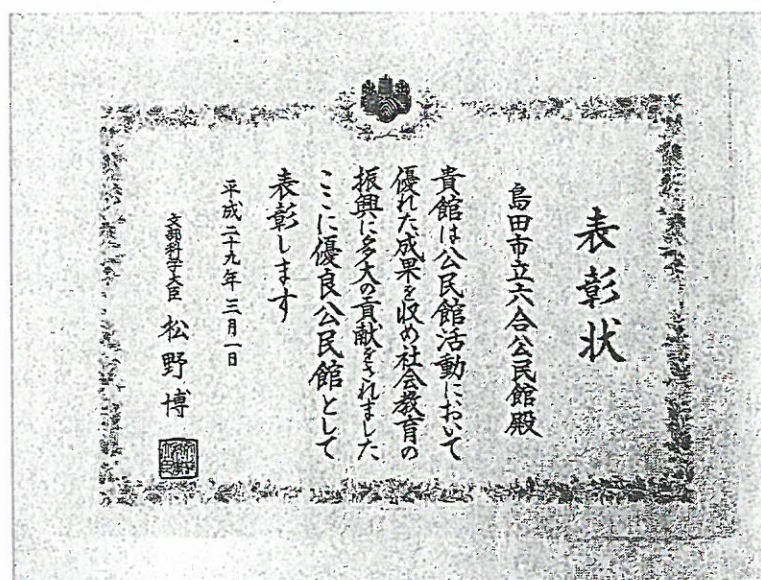 表彰状
島田市立六合公民館殿
貴館は公民館活動において
優れた成果を収め社会教育の
振興に多大の貢献をされました
ここに優良公民館として
表彰します
平成二十九年三月一日
文部科学大臣 松野博